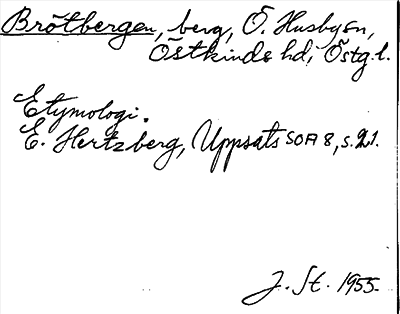 Brötbergen, berg, Ö. Husbysn,
Östkinds hd, Östg. l.
Etymologi.
E. Hertzberg, Uppsats SOA 8, s. 21.
J. St. 1955.